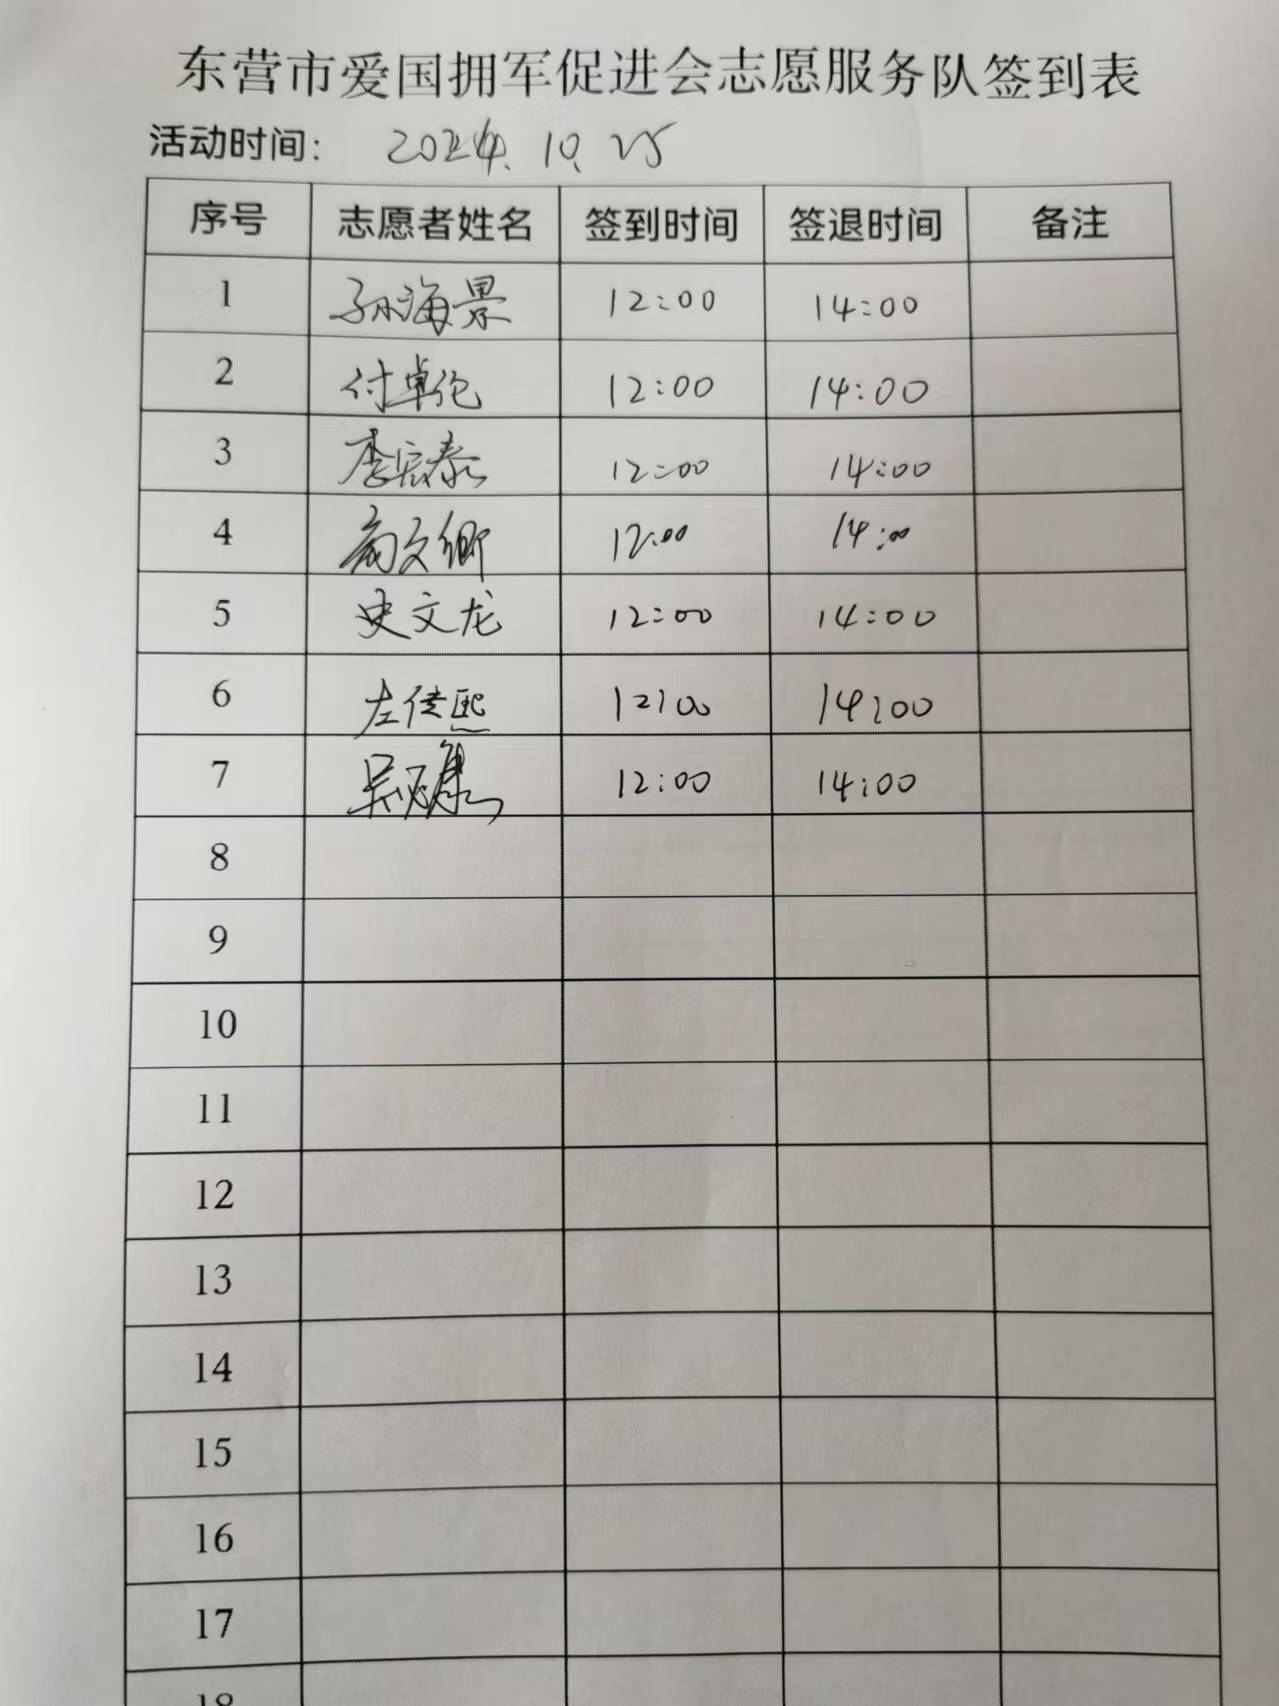 东营市爱国拥军促进会志愿服务队签到表
活动时间： 2024.10.25
序号 志愿者姓名 签到时间 签退时间 备注
1 孙海景 12:00 14:00
2 付卓伦 12:00 14:00
3 李宏泰 12:00 14:00
4 文卿 12:00 14:00
5 史文龙 12:00 14:00
6 左佳熙 12:00 14:00
7 吴 12:00 14:00
8
9
10
11
12
13
14
15
16
17
18